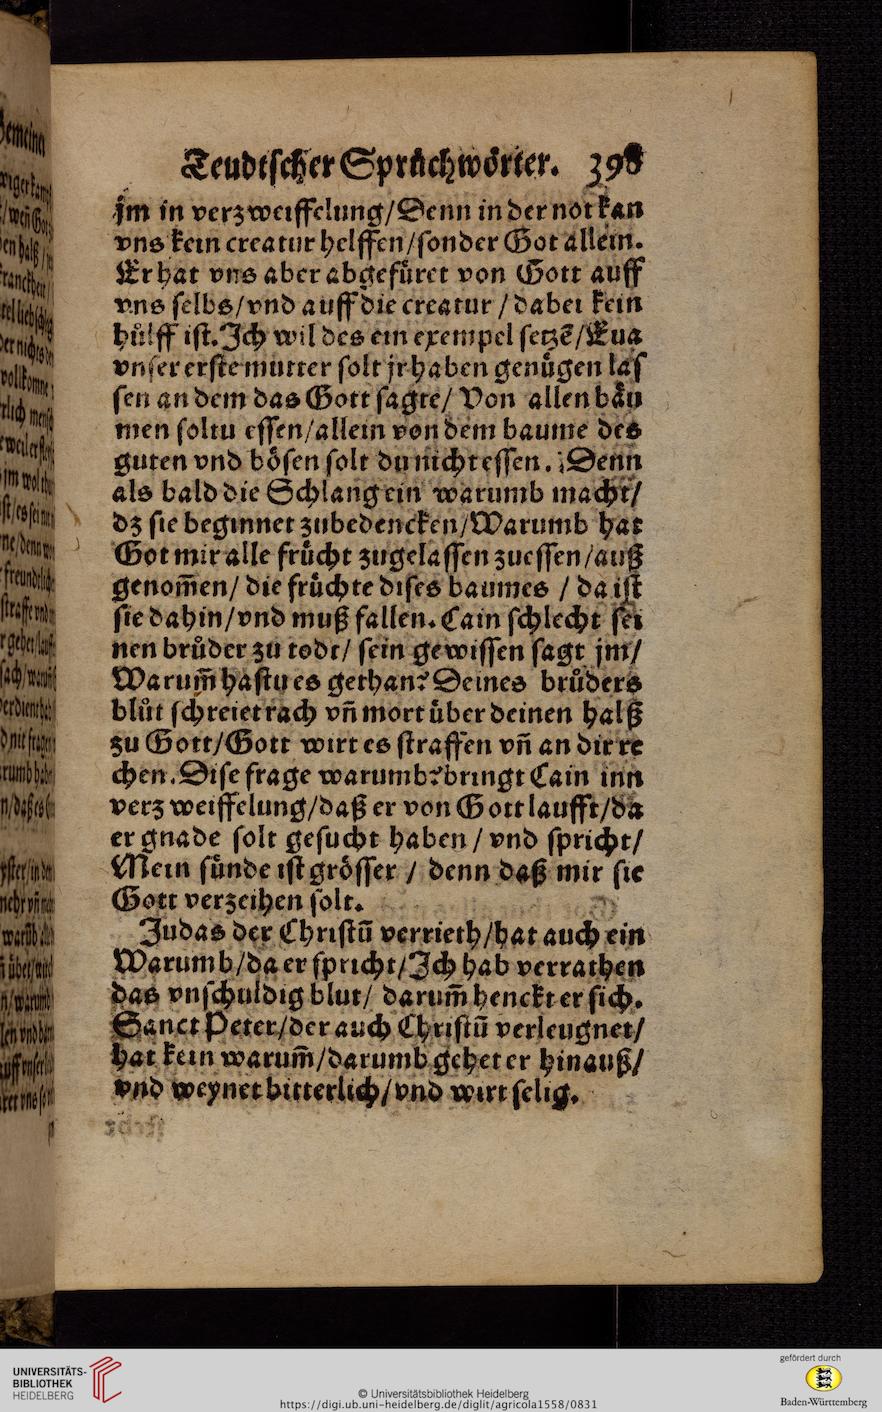 Teudtſcher Spruͤchwoͤrter. 398
jm in verzweiffelung/Denn in der not kan
vns kein creatur helffen/ſonder Got allein.
Er hat vns aber abgefuͤret von Gott auff
vns ſelbs/vnd auff die creatur / dabei kein
huͤlff iſt. Jch wil des ein exempel ſetzẽ/Eua
vnſer erſte mutter ſolt jr haben genuͤgen laſ
ſen an dem das Gott ſagte/ Von allen baͤu
men ſoltu eſſen/allein von dem baume des
guten vnd boͤſen ſolt du nicht eſſen. Denn
als bald die Schlang ein warumb macht/
dz ſie beginnet zubedencken/Warumb hat
Got mir alle fruͤcht zugelaſſen zueſſen/auß
genom̃en/ die fruͤchte diſes baumes / da iſt
ſie dahin/vnd muß fallen. Cain ſchlecht ſei
nen bruͦder zu todt/ ſein gewiſſen ſagt jm/
Warum̃ haſtu es gethan? Deines bruͦders
bluͦt ſchreiet rach vñ mort uͤber deinen halß
zu Gott/Gott wirt es ſtraffen vñ an dir re
chen. Diſe frage warumb? bringt Cain inn
verzweiffelung/daß er von Gott laufft/da
er gnade ſolt geſucht haben / vnd ſpricht/
Mein ſuͤnde iſt groͤſſer / denn daß mir ſie
Gott verzeihen ſolt.
Judas der Chriſtũ verrieth/hat auch ein
Warumb/da er ſpricht/Jch hab verrathen
das vnſchuldig blut/ darum̃ henckt er ſich.
Sanct Peter/der auch Chriſtũ verleugnet/
hat kein warum̃/darumb gehet er hinauß/
vnd weynet bitterlich/vnd wirt ſelig.
UNIVERSITÄTS-
BIBLIOTHEK
HEIDELBERG
© Universitätsbibliothek Heidelberg
https://digi.ub.uni-heidelberg.de/diglit/agricola1558/0831
gefördert durch
Baden-Württemberg